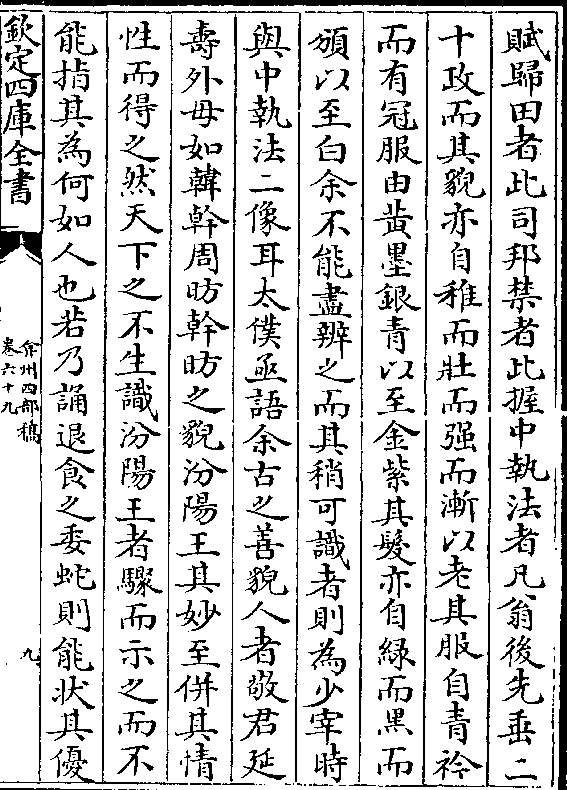 賦歸田者此司邦禁者此握中執法者凡翁後先垂二
十政而其貌亦自稚而壯而强而漸以老其服自青衿
而有冠服由黄墨銀青以至金紫其髮亦自緑而黑而
頒以至白余不能盡辨之而其稍可識者則為少宰時
與中執法二像耳太僕亟語余古之善貌人者敬君延
壽外毋如韓幹周昉幹昉之貌汾陽王其妙至併其情
性而得之然天下之不生識汾陽王者驟而示之而不
能指其為何如人也若乃誦退食之委蛇則能狀其優
欽定四庫全書
弇州四部稿
卷六十九
九